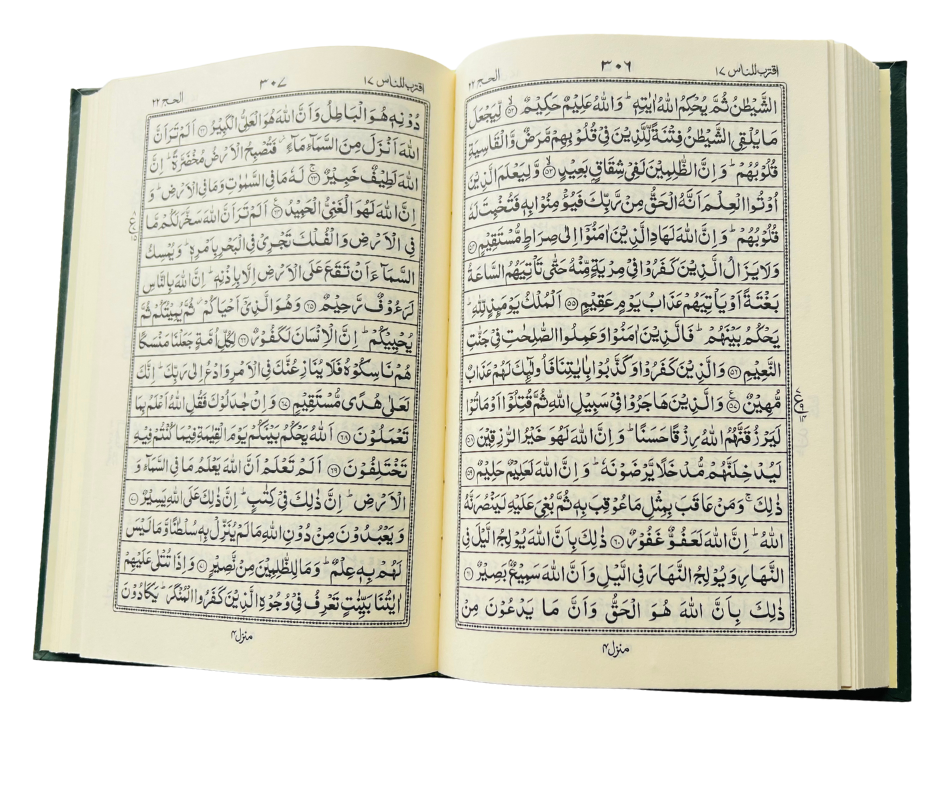 اقترب للناس ١٧
٣٠٦
الحج ٢٢
الشَّيْطٰنُ ثُمَّ يُحْكِمُ اللّٰهُ اٰيٰتِهٖ ؕ وَاللّٰهُ عَلِيْمٌ حَكِيْمٌ ۙ﴿٥٢﴾ لِّيَجْعَلَ
مَا يُلْقِى الشَّيْطٰنُ فِتْنَةً لِّلَّذِيْنَ فِىْ قُلُوْبِهِمْ مَّرَضٌ وَّالْقَاسِيَةِ
قُلُوْبُهُمْ ؕ وَاِنَّ الظّٰلِمِيْنَ لَفِىْ شِقَاقٍۢ بَعِيْدٍ ۙ﴿٥٣﴾ وَّلِيَعْلَمَ الَّذِيْنَ
اُوْتُوا الْعِلْمَ اَنَّهُ الْحَقُّ مِنْ رَّبِّكَ فَيُؤْمِنُوْا بِهٖ فَتُخْبِتَ لَهٗ
قُلُوْبُهُمْ ؕ وَاِنَّ اللّٰهَ لَهَادِ الَّذِيْنَ اٰمَنُوْۤا اِلٰى صِرَاطٍ مُّسْتَقِيْمٍ ﴿٥٤﴾
وَلَا يَزَالُ الَّذِيْنَ كَفَرُوْا فِىْ مِرْيَةٍ مِّنْهُ حَتّٰى تَاْتِيَهُمُ السَّاعَةُ
بَغْتَةً اَوْ يَاْتِيَهُمْ عَذَابُ يَوْمٍ عَقِيْمٍ ﴿٥٥﴾ اَلْمُلْكُ يَوْمَىِٕذٍ لِّلّٰهِ ؕ
يَحْكُمُ بَيْنَهُمْ ؕ فَالَّذِيْنَ اٰمَنُوْا وَعَمِلُوا الصّٰلِحٰتِ فِىْ جَنّٰتِ
النَّعِيْمِ ﴿٥٦﴾ وَالَّذِيْنَ كَفَرُوْا وَكَذَّبُوْا بِاٰيٰتِنَا فَاُولٰٓىِٕكَ لَهُمْ عَذَابٌ
مُّهِيْنٌ ﴿٥٧﴾ وَالَّذِيْنَ هَاجَرُوْا فِىْ سَبِيْلِ اللّٰهِ ثُمَّ قُتِلُوْۤا اَوْ مَاتُوْا
لَيَرْزُقَنَّهُمُ اللّٰهُ رِزْقًا حَسَنًا ؕ وَاِنَّ اللّٰهَ لَهُوَ خَيْرُ الرّٰزِقِيْنَ ﴿٥٨﴾
لَيُدْخِلَنَّهُمْ مُّدْخَلًا يَّرْضَوْنَهٗ ؕ وَاِنَّ اللّٰهَ لَعَلِيْمٌ حَلِيْمٌ ﴿٥٩﴾
ذٰلِكَ ۚ وَمَنْ عَاقَبَ بِمِثْلِ مَا عُوْقِبَ بِهٖ ثُمَّ بُغِىَ عَلَيْهِ لَيَنْصُرَنَّهُ
اللّٰهُ ؕ اِنَّ اللّٰهَ لَعَفُوٌّ غَفُوْرٌ ﴿٦٠﴾ ذٰلِكَ بِاَنَّ اللّٰهَ يُوْلِجُ الَّيْلَ فِى
النَّهَارِ وَيُوْلِجُ النَّهَارَ فِى الَّيْلِ وَاَنَّ اللّٰهَ سَمِيْعٌۢ بَصِيْرٌ ﴿٦١﴾
ذٰلِكَ بِاَنَّ اللّٰهَ هُوَ الْحَقُّ وَاَنَّ مَا يَدْعُوْنَ مِنْ
منزل ٤
اقترب للناس ١٧
٣٠٧
الحج ٢٢
دُوْنِهٖ هُوَ الْبَاطِلُ وَاَنَّ اللّٰهَ هُوَ الْعَلِىُّ الْكَبِيْرُ ﴿٦٢﴾ اَلَمْ تَرَ اَنَّ
اللّٰهَ اَنْزَلَ مِنَ السَّمَآءِ مَآءً ؗ فَتُصْبِحُ الْاَرْضُ مُخْضَرَّةً ؕ اِنَّ
اللّٰهَ لَطِيْفٌ خَبِيْرٌ ۚ﴿٦٣﴾ لَهٗ مَا فِى السَّمٰوٰتِ وَمَا فِى الْاَرْضِ ؕ وَ
اِنَّ اللّٰهَ لَهُوَ الْغَنِىُّ الْحَمِيْدُ ﴿٦٤﴾ اَلَمْ تَرَ اَنَّ اللّٰهَ سَخَّرَ لَكُمْ مَّا
فِى الْاَرْضِ وَالْفُلْكَ تَجْرِىْ فِى الْبَحْرِ بِاَمْرِهٖ ؕ وَيُمْسِكُ
السَّمَآءَ اَنْ تَقَعَ عَلَى الْاَرْضِ اِلَّا بِاِذْنِهٖ ؕ اِنَّ اللّٰهَ بِالنَّاسِ
لَرَءُوْفٌ رَّحِيْمٌ ﴿٦٥﴾ وَهُوَ الَّذِىْۤ اَحْيَاكُمْ ؗ ثُمَّ يُمِيْتُكُمْ ثُمَّ
يُحْيِيْكُمْ ؕ اِنَّ الْاِنْسَانَ لَكَفُوْرٌ ﴿٦٦﴾ لِكُلِّ اُمَّةٍ جَعَلْنَا مَنْسَكًا
هُمْ نَاسِكُوْهُ فَلَا يُنَازِعُنَّكَ فِى الْاَمْرِ وَادْعُ اِلٰى رَبِّكَ ؕ اِنَّكَ
لَعَلٰى هُدًى مُّسْتَقِيْمٍ ﴿٦٧﴾ وَاِنْ جٰدَلُوْكَ فَقُلِ اللّٰهُ اَعْلَمُ بِمَا
تَعْمَلُوْنَ ﴿٦٨﴾ اَللّٰهُ يَحْكُمُ بَيْنَكُمْ يَوْمَ الْقِيٰمَةِ فِيْمَا كُنْتُمْ فِيْهِ
تَخْتَلِفُوْنَ ﴿٦٩﴾ اَلَمْ تَعْلَمْ اَنَّ اللّٰهَ يَعْلَمُ مَا فِى السَّمَآءِ وَ
الْاَرْضِ ؕ اِنَّ ذٰلِكَ فِىْ كِتٰبٍ ؕ اِنَّ ذٰلِكَ عَلَى اللّٰهِ يَسِيْرٌ ﴿٧٠﴾
وَيَعْبُدُوْنَ مِنْ دُوْنِ اللّٰهِ مَا لَمْ يُنَزِّلْ بِهٖ سُلْطٰنًا وَّمَا لَيْسَ
لَهُمْ بِهٖ عِلْمٌ ؕ وَمَا لِلظّٰلِمِيْنَ مِنْ نَّصِيْرٍ ﴿٧١﴾ وَاِذَا تُتْلٰى عَلَيْهِمْ
اٰيٰتُنَا بَيِّنٰتٍ تَعْرِفُ فِىْ وُجُوْهِ الَّذِيْنَ كَفَرُوا الْمُنْكَرَ ؕ يَكَادُوْنَ
منزل ٤